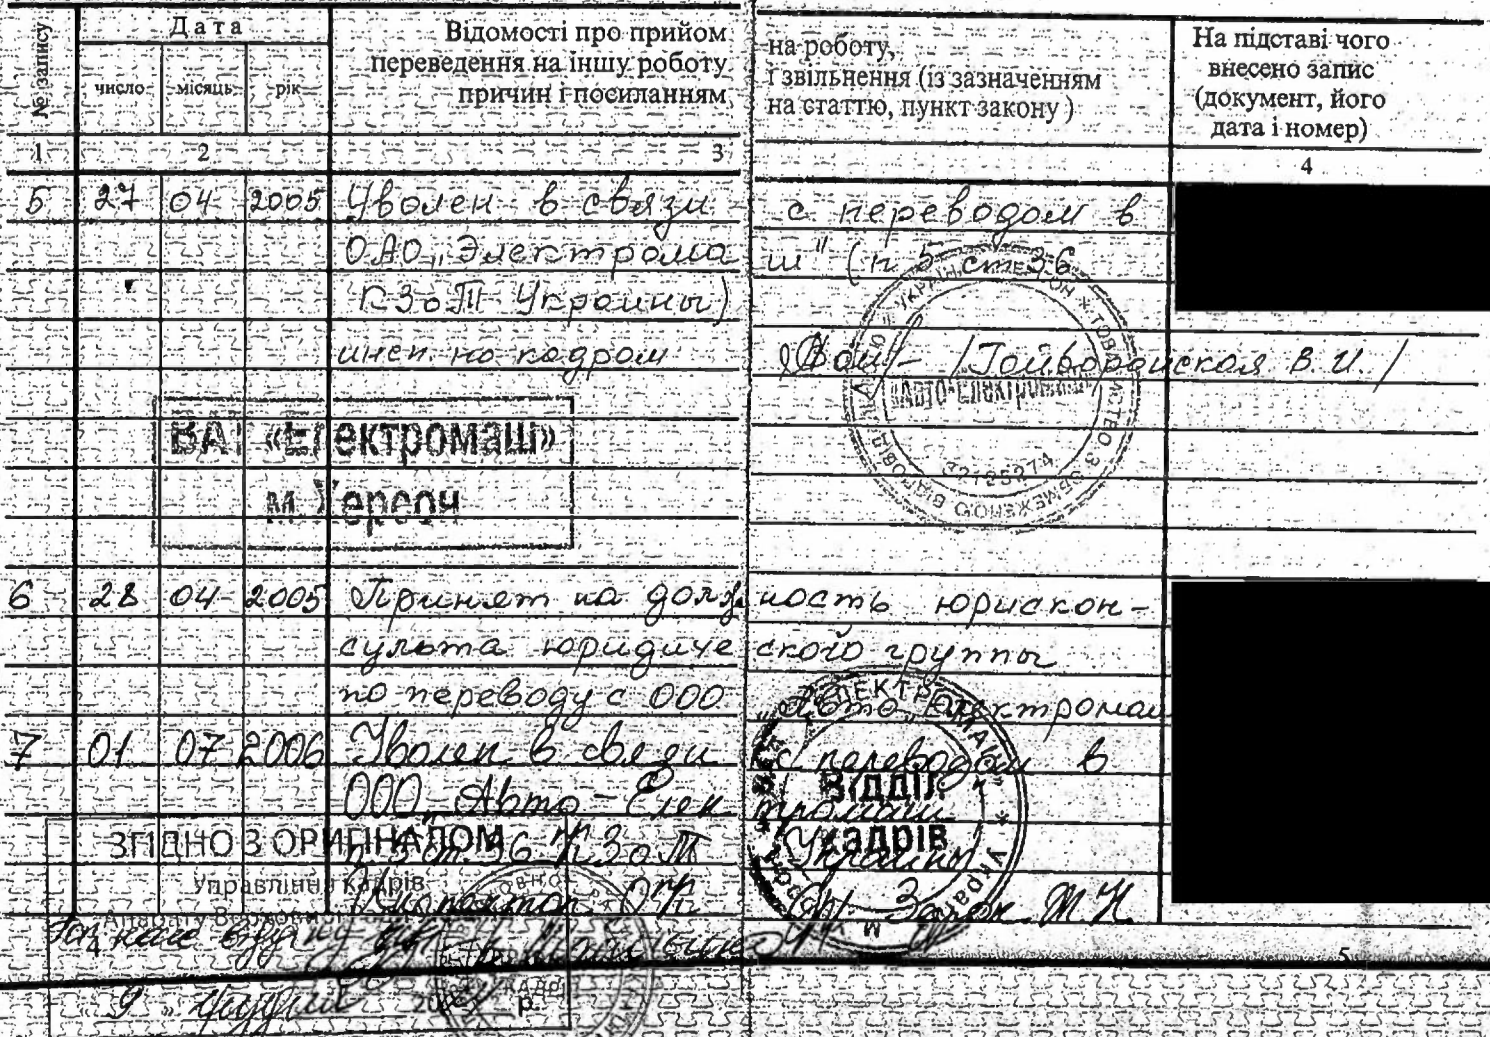 № запису
Дата
число місяць рік
Відомості про прийом на роботу,
переведення на іншу роботу і звільнення (із зазначенням
причин і посиланням на статтю, пункт закону)
На підставі чого
внесено запис
(документ, його
дата і номер)
1 2 3 4
5 27 04 2005 Уволен в связи с переводом в
ОАО „Электрома ш" (п 5 ст 36
КЗоТ Украины)
инсп. по кадрам /Гойворонская В. И./
«Авто-Електромаш»
32125274
ВАТ «Електромаш»
м. Херсон
6 28 04 2005 Принят на долж ность юрискон-
сульта юридиче ского группы
по переводу с ООО „Авто-Електромаш
7 01 07 2006 Уволен в связи с переводом в
ООО „Авто-Елек тромаш
п 5 ст. 36 КЗоТ Украины
Инспектор ОК
ВІДДІЛ
КАДРІВ
ЗГІДНО З ОРИГІНАЛОМ
Управління кадрів
Апарату Верховної
9 грудня р.
5